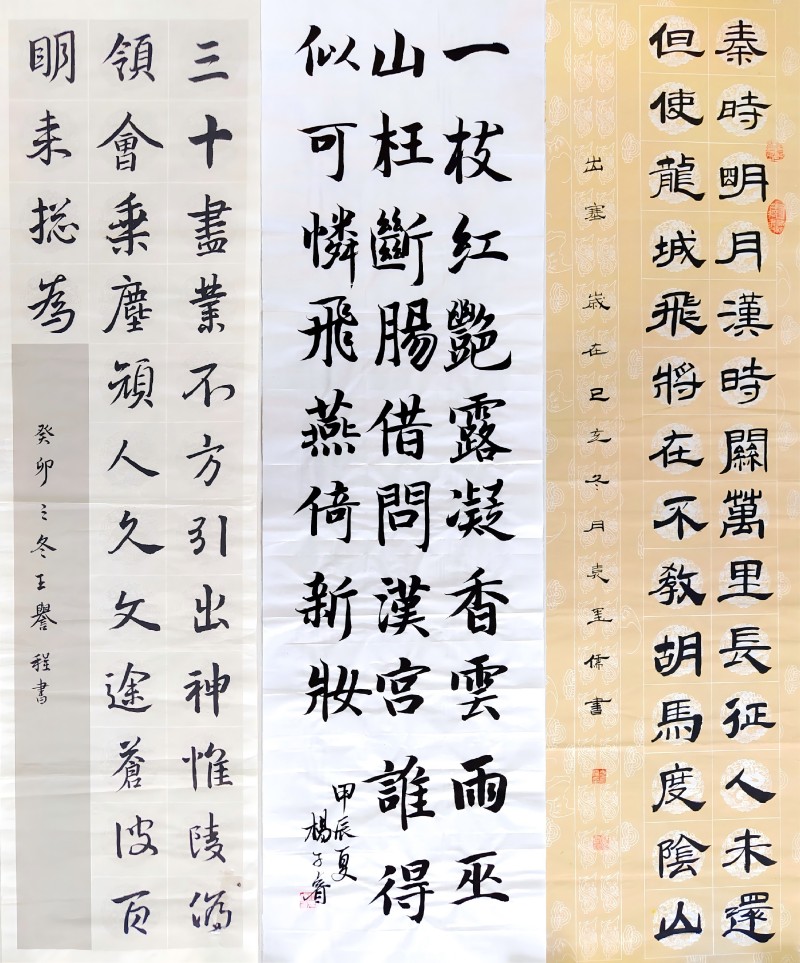 秦時眀月漢時關萬里長征人未還
但使龍城飛將在不教胡馬度陰山
出塞 歲在己亥冬月 儒書
一枝紅艷露凝香雲雨巫
山枉斷腸借問漢宮誰得
似可憐飛燕倚新妝
甲辰夏
楊子睿
三十盡業不方引出神惟陵
領會乘塵頑人久文途蒼波頁
眀来捴為
癸卯之冬王譽程書